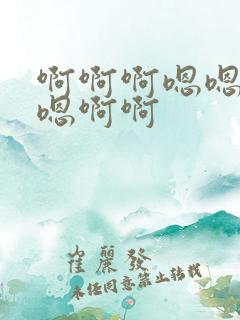 啊啊啊嗯嗯
嗯啊啊
崔丽发
未经同意禁止转载